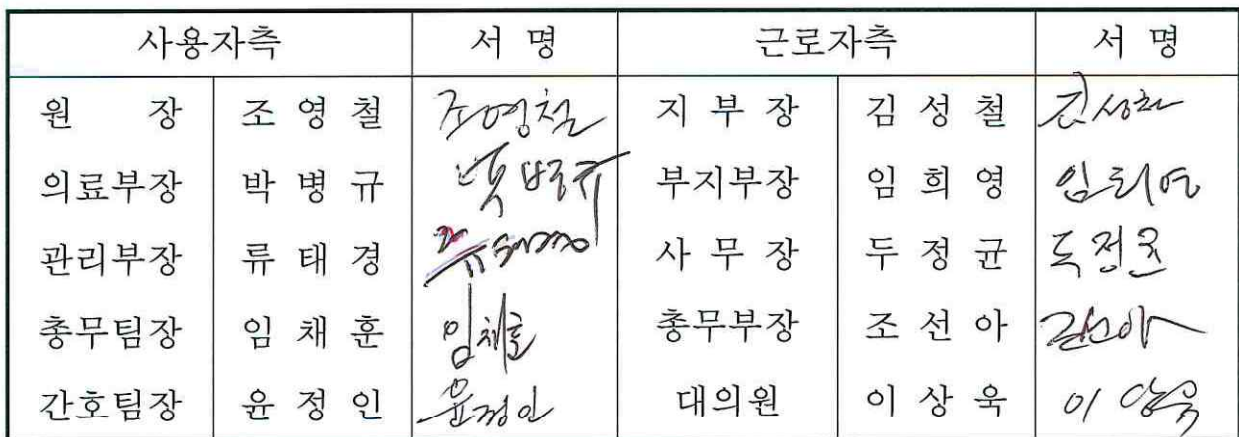 사용자측 서 명 근로자측 서 명
원 장 조 영 철 조영철 지 부 장 김 성 철 김성철
의료부장 박 병 규 박병규 부지부장 임 희 영 임희영
관리부장 류 태 경 류태경 사 무 장 두 정 균 두정균
총무팀장 임 채 훈 임채훈 총무부장 조 선 아 조선아
간호팀장 윤 정 인 윤정인 대의원 이 상 욱 이상욱